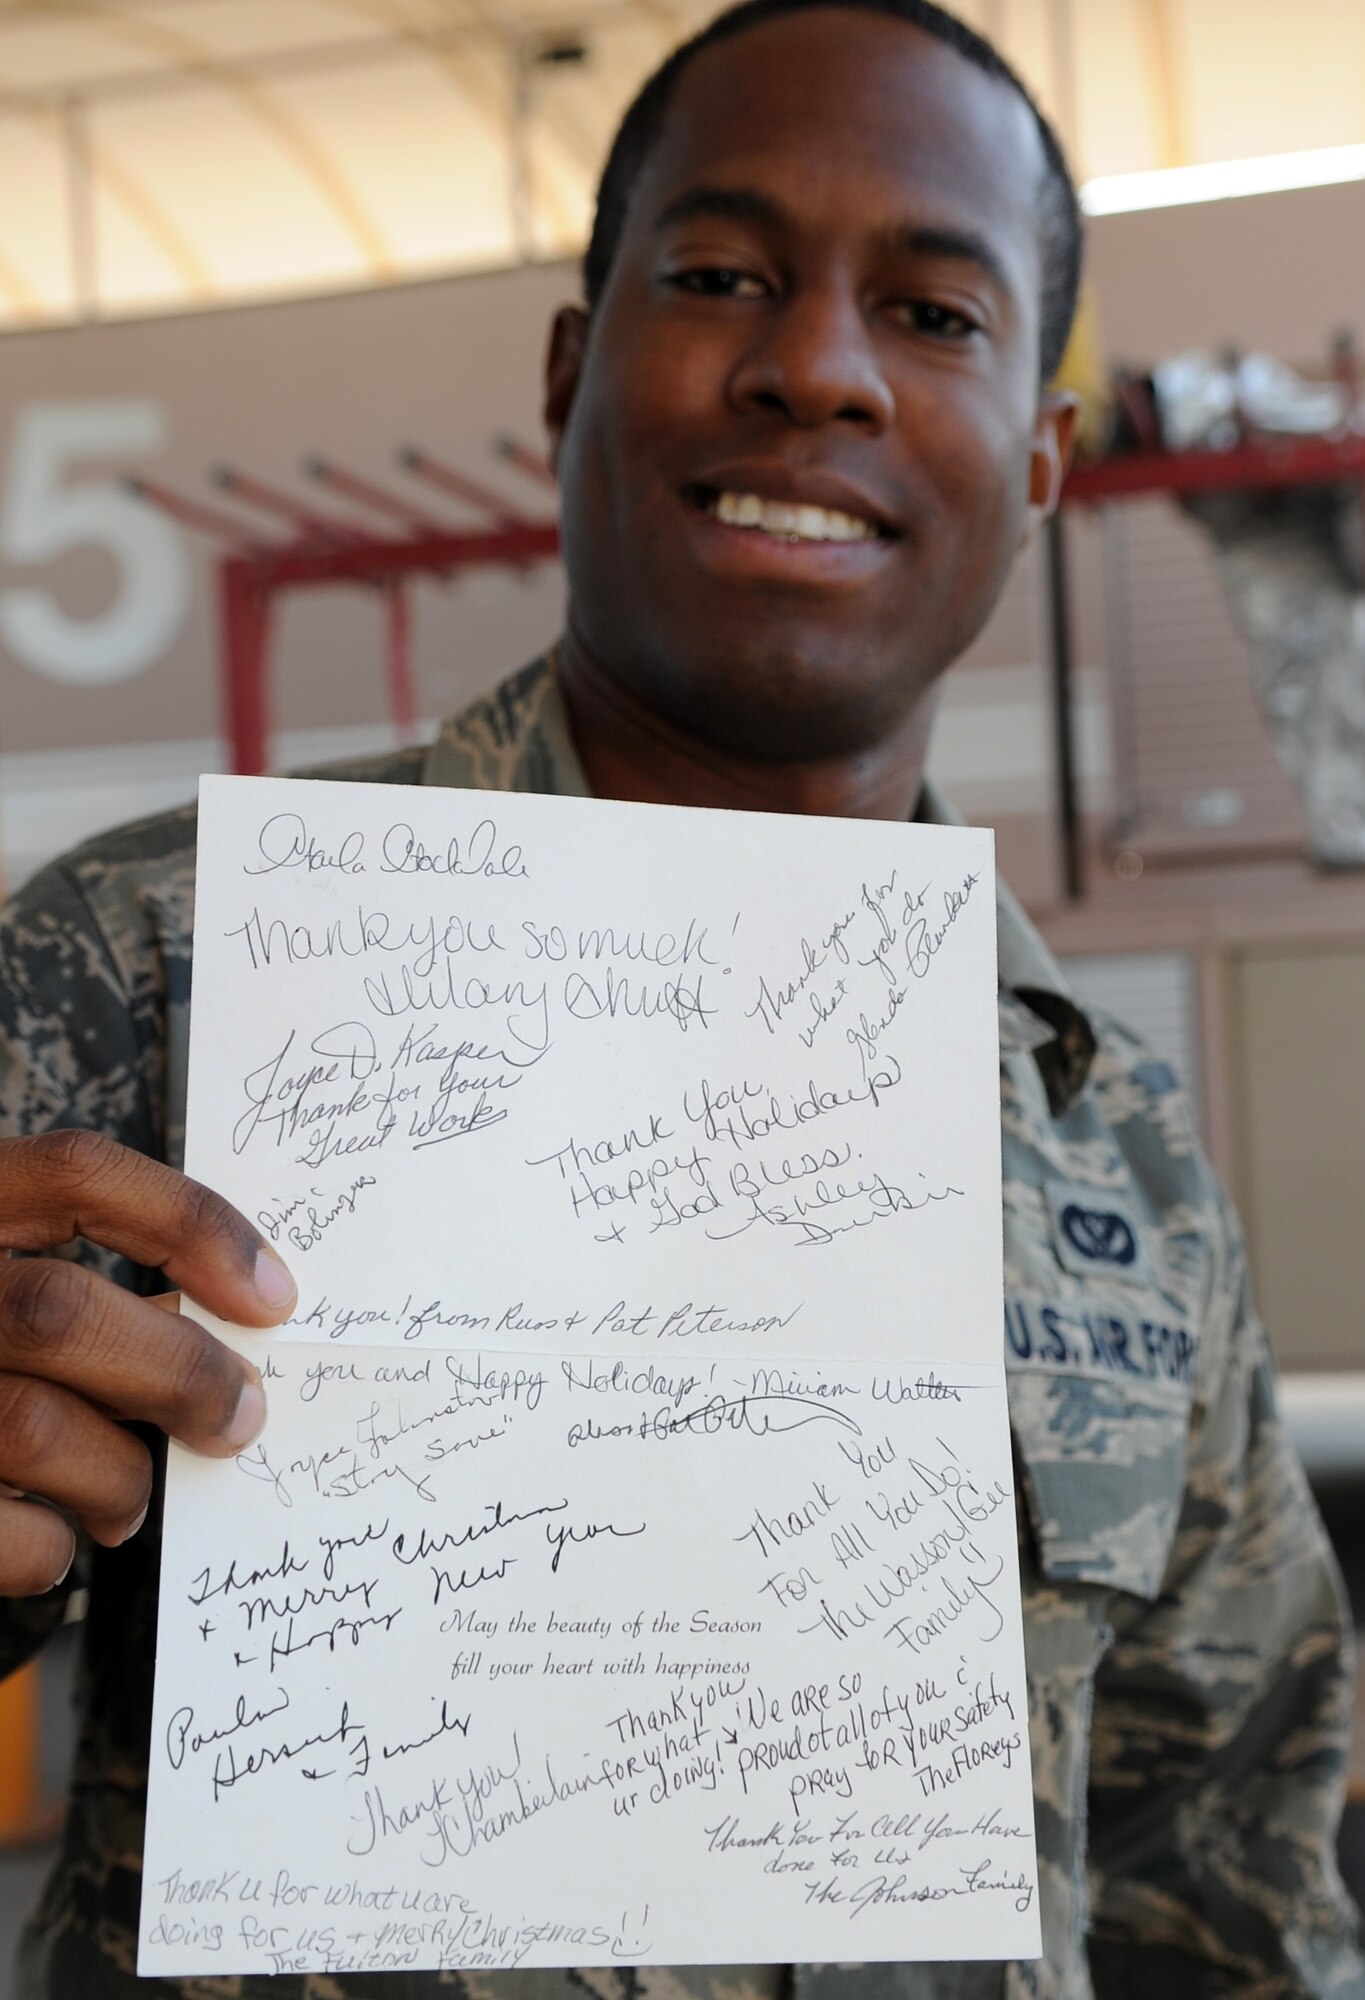 5
Thank you so much!
Hilary Chuff
Thank you for
what you do
Glenda
Joyce D. Kasper
Thank for your
Great Work
Thank You,
Happy Holidays
+ God Bless.
Ashley
Durbin
Jim
Bolinger
nk you! from Russ & Pat Peterson
nk you and Happy Holidays! - Miriam Walter
Joyce Johnston
"Stay Save"
U.S. AIR FOR
Thank You
For All You Do!
The Wasson/Gee
Family
Thank you
+ Merry Christmas
+ Happy New Year
Family
May the beauty of the Season
fill your heart with happiness
Thank you
for what
ur doing!
We are so
proud of all of you &
pray for your safety
The Floreys
Thank you!
J Chamberlain
Thank You For All You Have
done For Us
The Johnson Family
Thank u for what u are
doing for us + Merry Christmas!!
The Fulton Family